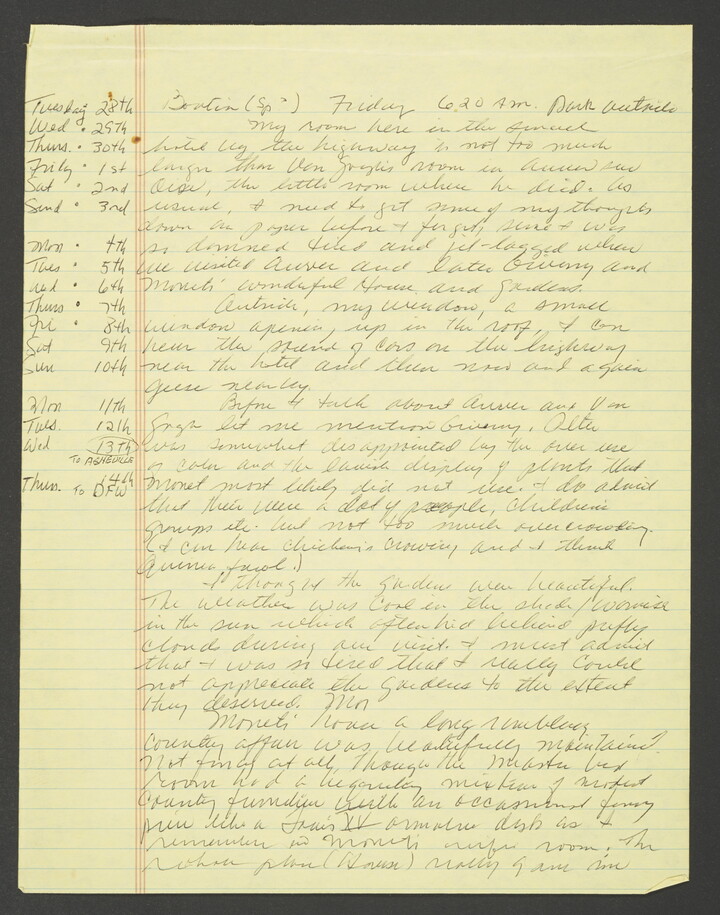 Tuesday 28th
Wed • 29th
Thurs • 30th
Friday • 1st
Sat • 2nd
Sund • 3rd
Mon • 4th
Tues • 5th
Wed • 6th
Thurs • 7th
Fri • 8th
Sat 9th
Sun 10th
Mon 11th
Tues. 12th
Wed 13th
TO ASHEVILLE
Thurs. 14th
TO DFW
(Sp?) Friday 6:20 AM. Dark outside
My room here in the small
hotel by the highway is not too much
larger than Van Gogh's room in Auver sur
Oise, the little room where he died. As
usual, I need to get some of my thoughts
down on paper before I forget, since I was
so damned tired and jet-lagged when
we visited Auver and later Giverny and
Monet's wonderful House and gardens.
Outside, my window, a small
window opening, up in the roof, I can
hear the sound of cars on the highway
near the hotel and then now and again
geese nearby.
Before I talk about Auver and Van
Gogh let me mention Giverny.
was somewhat disappointed by the over use
of color and the lavish display of plants that
Monet most likely did not use. I do admit
that there were a lot of people, children's
groups etc. but not too much overcrowding.
(I can hear chickens crowing and I think
Guinea fowl.)
I thought the gardens were beautiful.
The weather was cool in the shade/warmish
in the sun which often hid behind puffy
clouds during our visit. I must admit
that I was so tired that I really could
not appreciate the gardens to the extent
they deserved. Mon
Monet's house a long rambling
country affair was beautifully maintained.
Not fancy at all, though the master bed
room had a mixture of modest
country furniture with an occasional fancy
piece like a Louis XV desk as I
remember in Monet's wife's room. The
whole place (House) really gave me